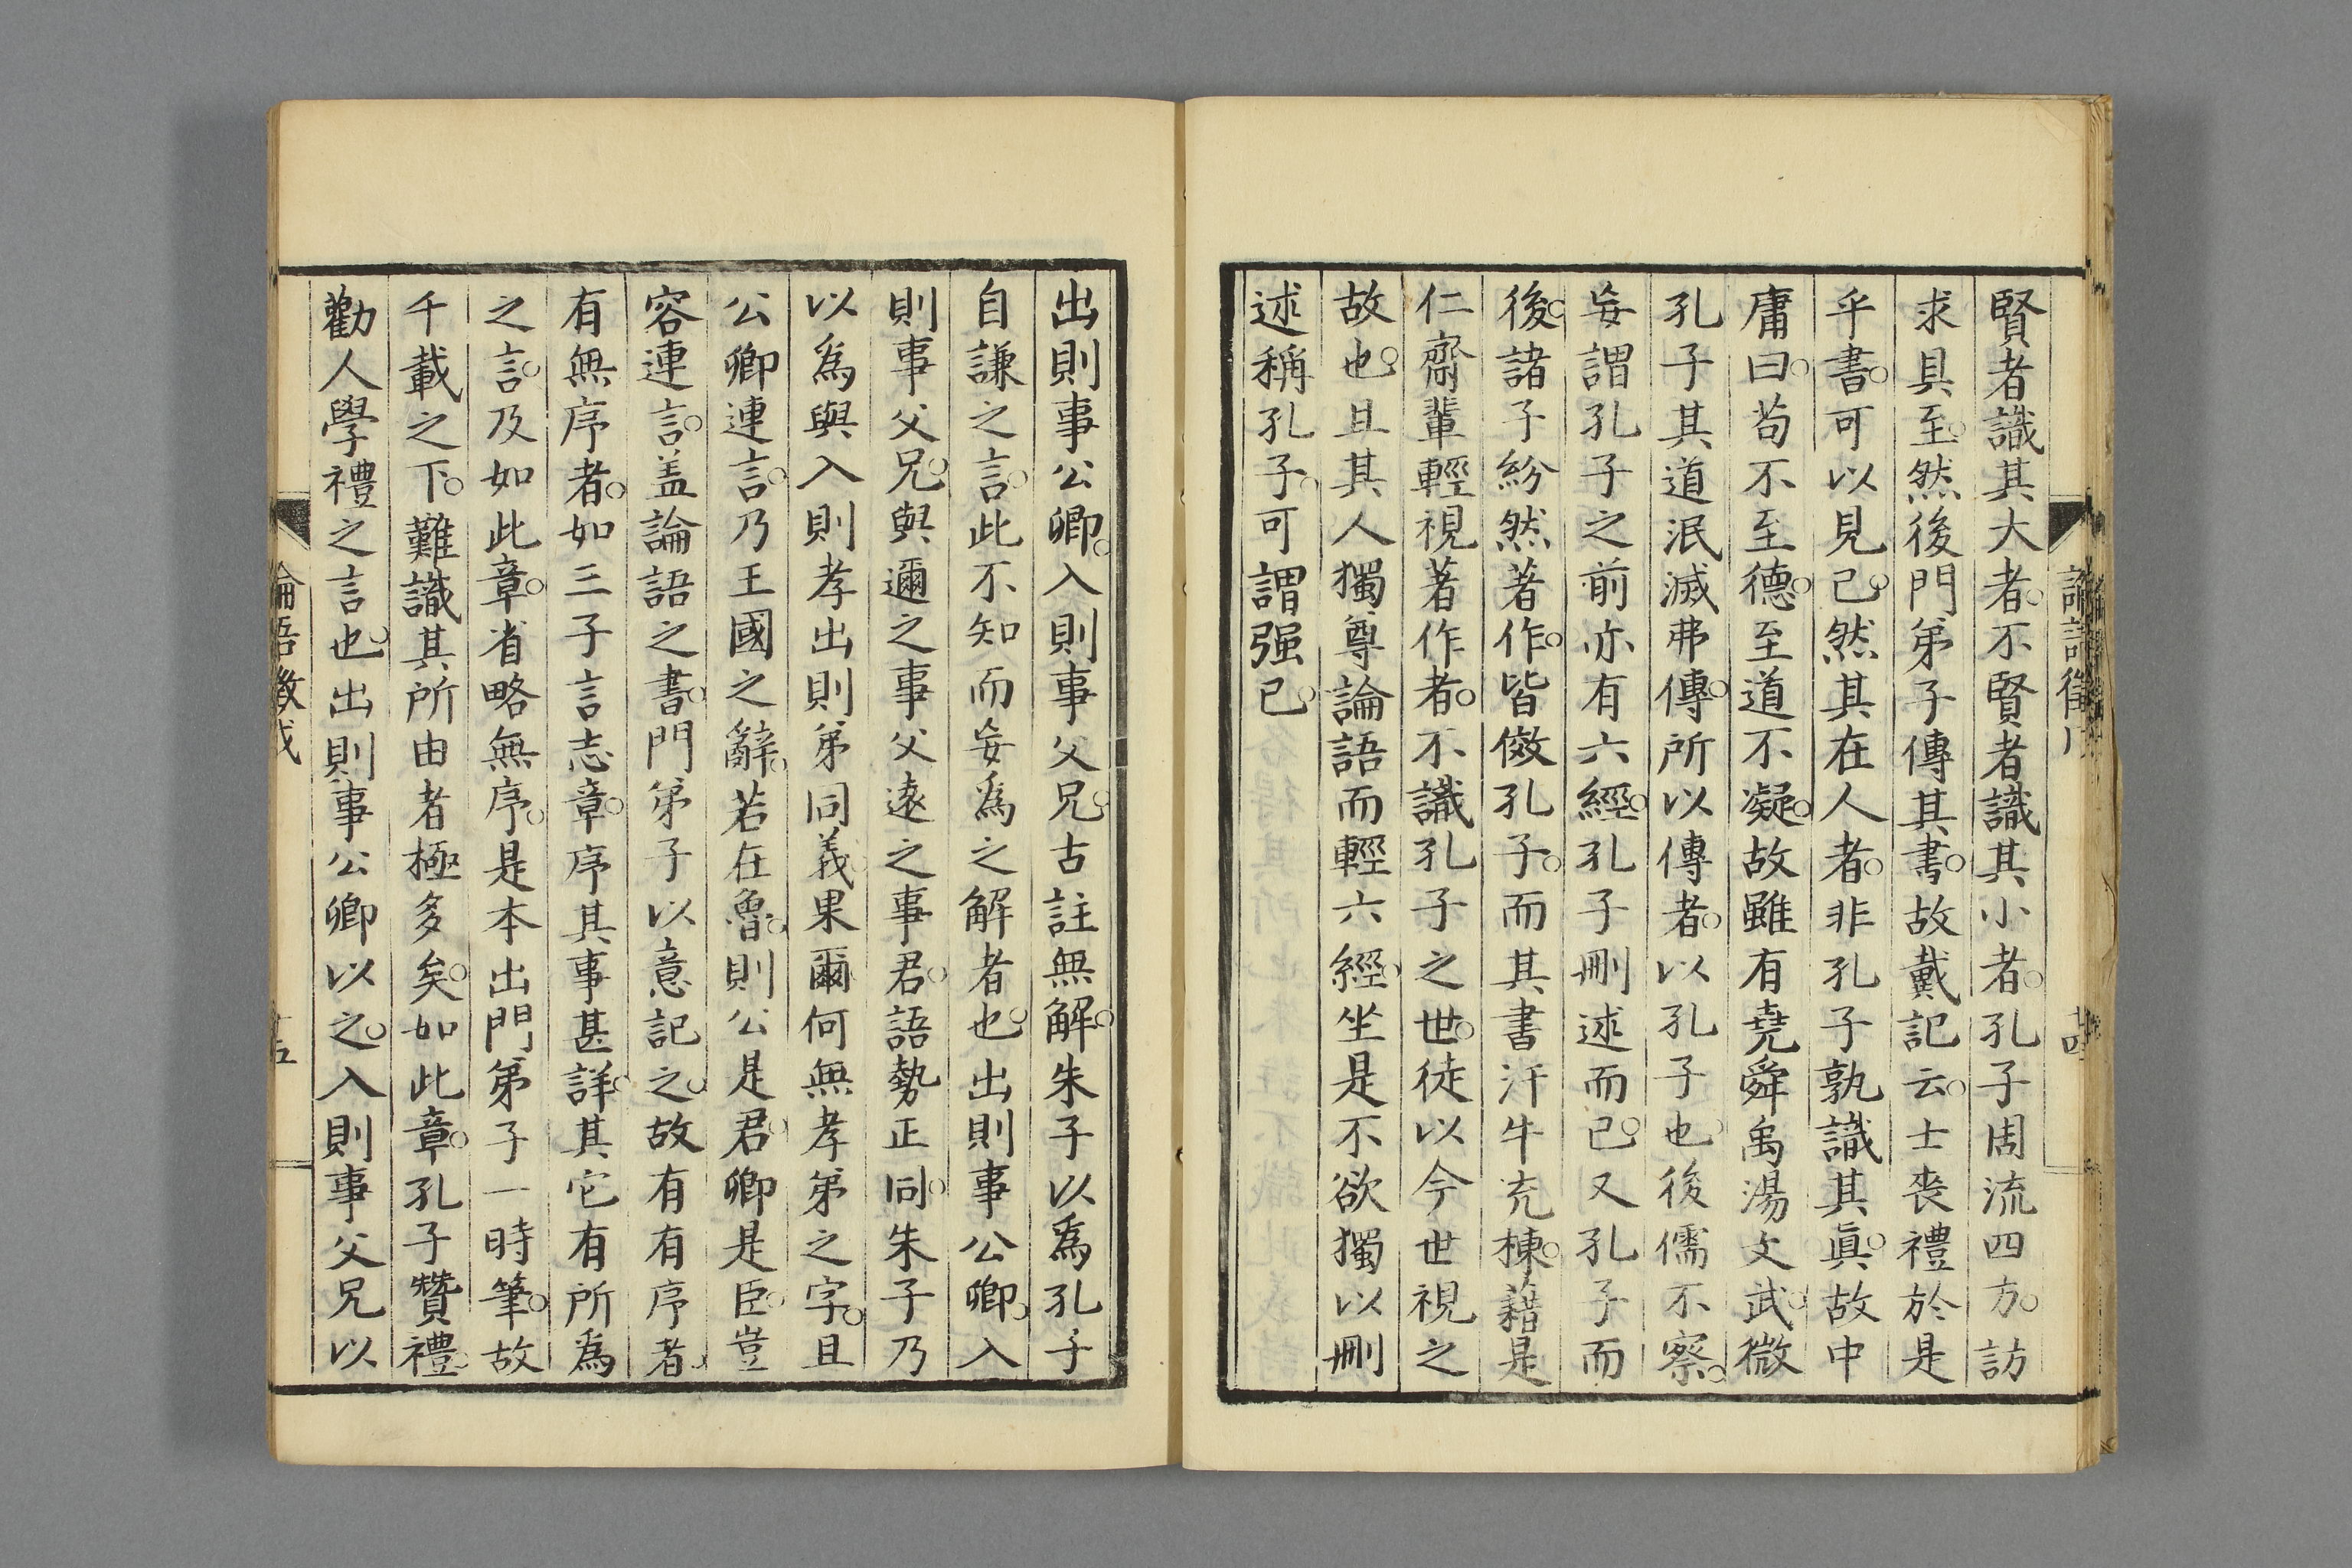 賢者識其大者。不賢者識其小者。孔子周流四方。訪
求具至。然後門弟子傳其書。故戴記云。士喪禮於是
乎書。可以見已。然其在人者。非孔子孰識其眞。故中
庸曰。苟不至德。至道不凝。故雖有堯舜禹湯文武。微
孔子其道泯滅弗傳。所以傳者。以孔子也。後儒不察。
妄謂孔子之前亦有六經。孔子刪述而已。又孔子而
後。諸子紛然著作。皆傚孔子。而其書汗牛充棟。藉是
仁齋輩輕視著作者。不識孔子之世。徒以今世視之
故也。且其人獨尊論語而輕六經。坐是不欲獨以刪
述稱孔子。可謂强已。
出則事公卿。入則事父兄。古註無解。朱子以爲孔子
自謙之言。此不知而妄爲之解者也。出則事公卿。入
則事父兄。與邇之事父遠之事君。語勢正同。朱子乃
以爲與入則孝出則弟同義。果爾何無孝弟之字。且
公卿連言。乃王國之辭。若在魯。則公是君。卿是臣。豈
容連言。盖論語之書。門弟子以意記之。故有有序者。
有無序者。如三子言志章。序其事甚詳。其它有所爲
之言。及如此章。省略無序。是本出門弟子一時筆。故
千載之下。難識其所由者極多矣。如此章。孔子贊禮。
勸人學禮之言也。出則事公卿以之。入則事父兄以